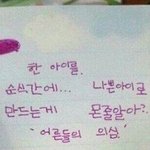 한 아이를.
순식간에... 나쁜아이로
만드는게 몬줄알아?
'어른들의 의심.'